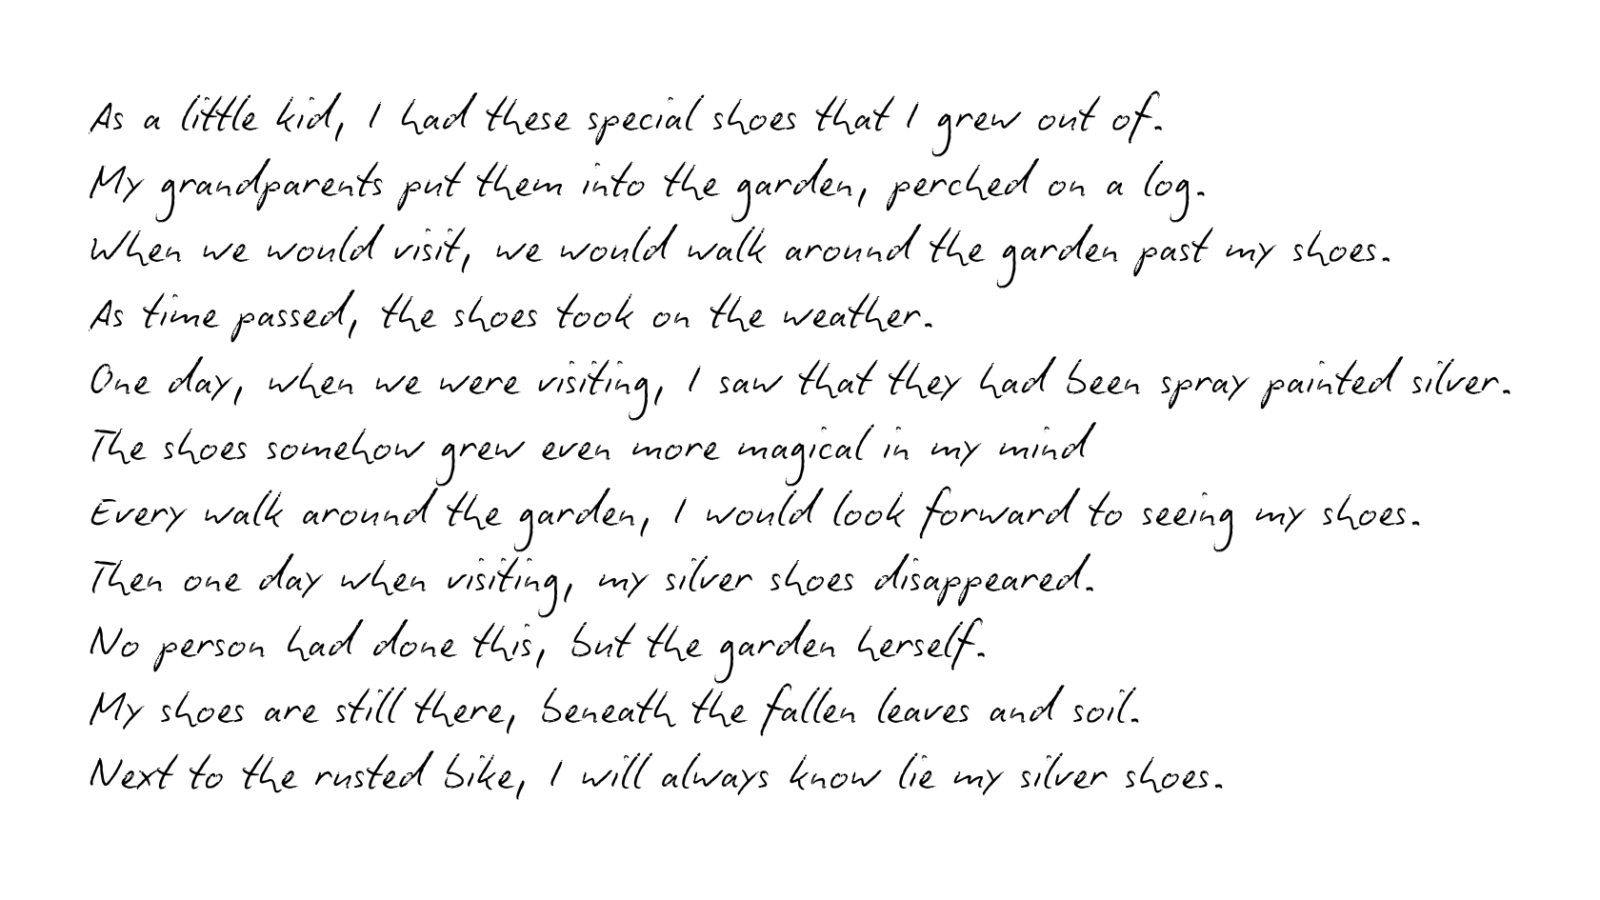 As a little kid, I had these special shoes that I grew out of.
My grandparents put them into the garden, perched on a log.
When we would visit, we would walk around the garden past my shoes.
As time passed, the shoes took on the weather.
One day, when we were visiting, I saw that they had been spray painted silver.
The shoes somehow grew even more magical in my mind
Every walk around the garden, I would look forward to seeing my shoes.
Then one day when visiting, my silver shoes disappeared.
No person had done this, but the garden herself.
My shoes are still there, beneath the fallen leaves and soil.
Next to the rusted bike, I will always know lie my silver shoes.